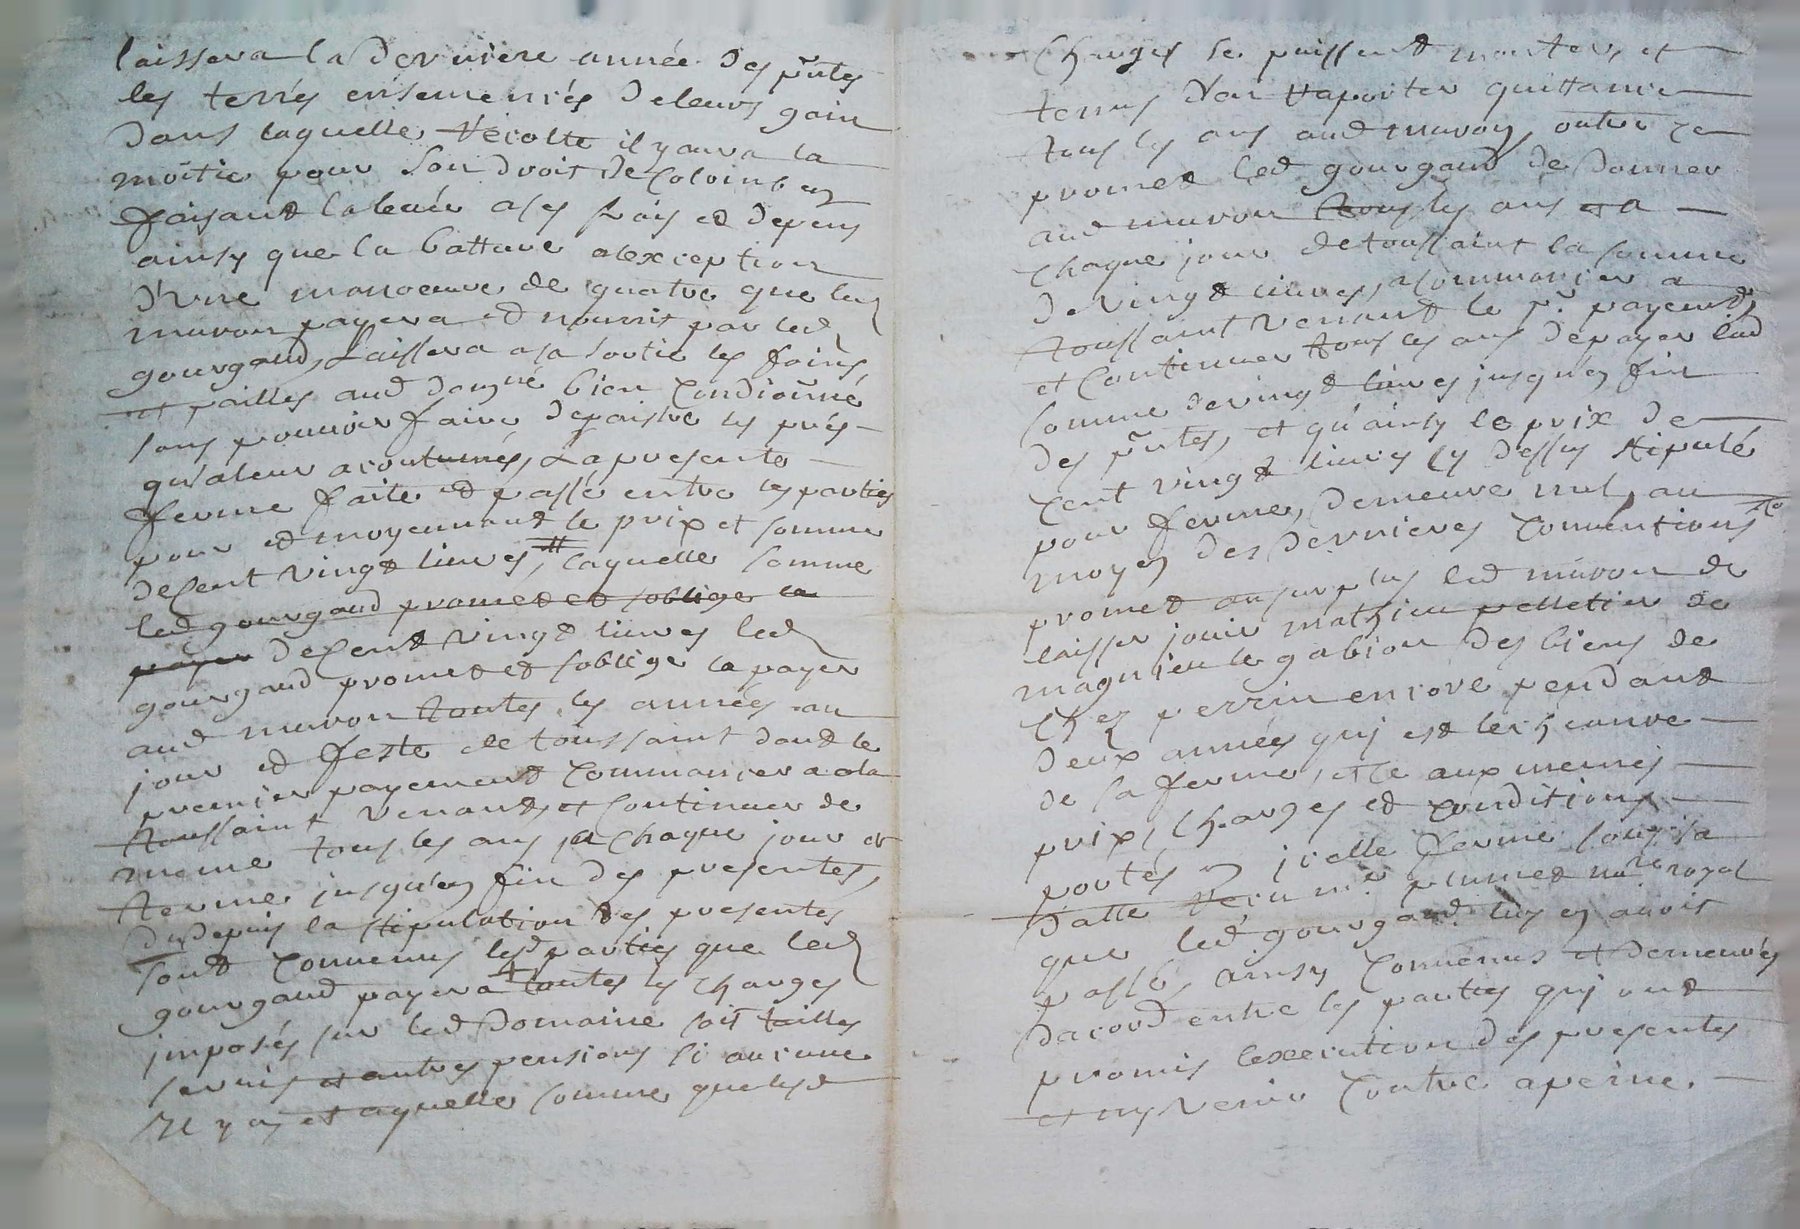 laissera la derniere année des pntes
les terres ensemencés de leurs grain
dans laquelle récolte il y aura la
moitié pour son droit de
faisant la levée a ses frais et depens
ainsy que la batture alexception
d'une manoeuvre de quatre que led
muron payera et nourris par led
gourgaud, Laissera a sa sortie les foins,
et pailles aud domne bien Condionné
sans pouvoir faire depaistre les prés
qu'aleur acoutumés, La presente
ferme faite et passé entre les parties
pour et moyennant le prix et somme
de Cent vingt livres, laquelle somme
led gourgaud promet et soblige la
payer de Cent vingt livres led
gourgaud promet et soblige la payer
aud muron toutes les années au
jour et feste de toussaint dont le
premier payement Commancera a la
toussaint venant, et Continuer de
meme tous les ans a Chaque jour et
terme jusqu'en fin des presentes,
Du depuis la stipulation des presentes
sont Convenus lesd parties que led
gourgaud payera toutes les charges
imposés sur led Domaine soit tailles
servis et autres pensions si aucune
Il y a, et a quelle somme que lesd
Charges se puissent monter, et
tenus d'en raporter quittance
tous les ans aud muron, outre ce
promet led gourgaud de donner
aud muron tous les ans et a
Chaque jour de toussaint la somme
de vingt livres, a Commancer a
toussaint venant le pr. payement,
et Continuer tous les ans de payer lad
somme de vingt livres jusqu'en fin
des pntes, et qu'ainsy le prix de
Cent vingt livres cy dessus stipulé
pour ferme, demeure nul, au
moyen des dernieres Conventions
promet au surplus led muron de
laisser jouir mathieu pelletier de
magnieu le gabion des biens de
Chez perrin encore pendant
deux années qui est
de sa ferme, et ce aux memes
prix, Charges et Conditions
portés en icelle ferme sous sa
datte recu me nore royal
que led gourgaud
passé, ainsy Convenus et demeurés
dacord entre les parties qui ont
promis lexecution des presentes
et ny venir Contre a peine.